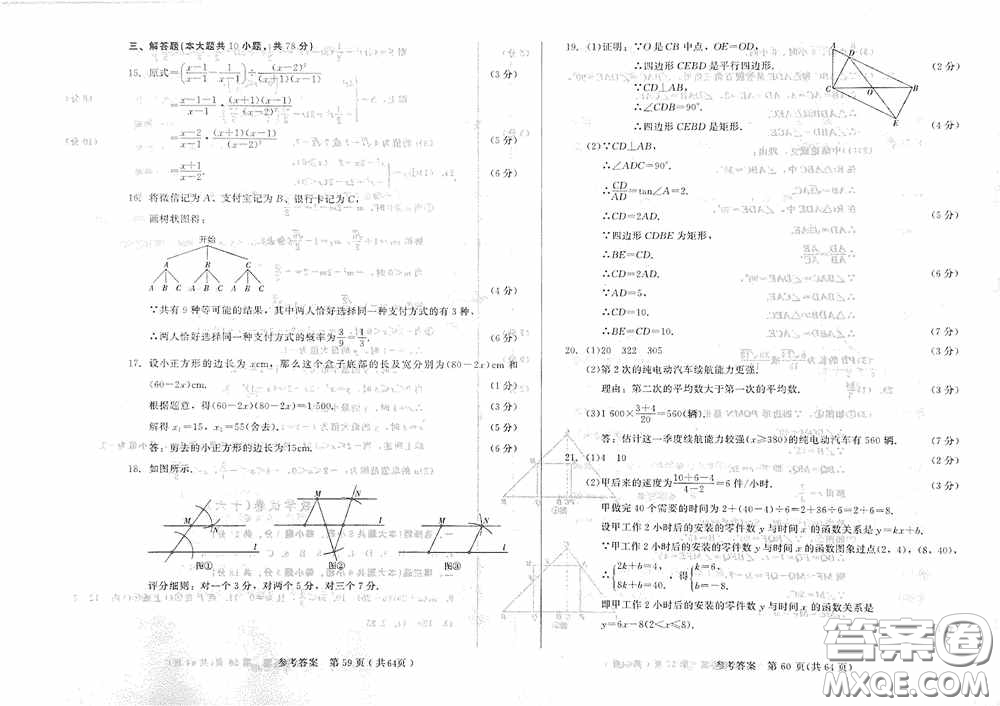 三、解答题(本大题共10小题，共78分)
15. 原式=(\frac{x-1}{x-1}-\frac{1}{x-1})÷\frac{(x-2)^2}{(x+1)(x-1)} (3分)
=\frac{x-1-1}{x-1}·\frac{(x+1)(x-1)}{(x-2)^2}
=\frac{x-2}{x-1}·\frac{(x+1)(x-1)}{(x-2)^2} (5分)
=\frac{x+1}{x-2}. (6分)
16. 将微信记为A、支付宝记为B、银行卡记为C,
画树状图得:
开始
A B C
A B C A B C A B C
(4分)
∵共有9种等可能的结果，其中两人恰好选择同一种支付方式的有3种，
∴两人恰好选择同一种支付方式的概率为\frac{3}{9}=\frac{1}{3}. (6分)
17. 设小正方形的边长为xcm，那么这个盒子底部的长及宽分别为(80-2x)cm和
(60-2x)cm. (1分)
根据题意，得(60-2x)(80-2x)=1 500. (3分)
解得x₁=15，x₂=55(舍去). (5分)
答：剪去的小正方形的边长为15cm. (6分)
18. 如图所示.
M N l
M N l
M N l
图① 图② 图③
评分细则：对一个3分，对两个5分，对三个7分.
参考答案 第59页(共64页)
19. (1)证明：∵O是CB中点，OE=OD,
∴四边形CEBD是平行四边形. (2分)
∵CD⊥AB,
∴∠CDB=90°.
∴四边形CEBD是矩形. (4分)
A D C O B E
(2)∵CD⊥AB,
∴∠ADC=90°.
∴\frac{CD}{AD}=tan∠A=2.
∴CD=2AD. (5分)
∵四边形CDBE为矩形,
∴BE=CD.
∴CD=2AD. (6分)
∵AD=5,
∴CD=10.
∴BE=CD=10. (7分)
20. (1)20 322 305 (3分)
(2)第2次的纯电动汽车续航能力更强.
理由：第二次的平均数大于第一次的平均数. (5分)
(3)1 600×\frac{3+4}{20}=560(辆).
答：估计这一季度续航能力较强(x≥380)的纯电动汽车有560辆. (7分)
21. (1)4 10 (2分)
(2)甲后来的速度为\frac{10+6-4}{4-2}=6件/小时. (3分)
甲做完40个需要的时间为2+(40-4)÷6=2+36÷6=2+6=8.
设甲工作2小时后的安装的零件数y与时间x的函数关系是y=kx+b,
∵甲工作2小时后的安装的零件数y与时间x的函数图象过点(2，4)，(8，40).
∴{2k+b=4, 8k+b=40. 得{k=6, b=-8.
即甲工作2小时后的安装的零件数y与时间x的函数关系是
y=6x-8(2≤x≤8).
参考答案 第60页(共64页)
答案圈
MXQE.COM